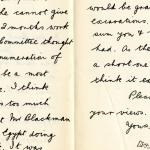 he cannot give
2 months work
Committee thought
numeration of
be a most
I think
too much
Mr Blackman
Egypt doing
It was
would be gra
excavations.
sum you
had. As the
a short one
think it
Pleas
your views.
Yours,